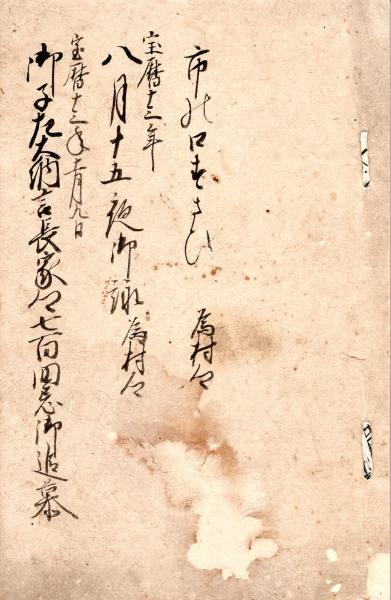 市の口すさひ　為村卿
宝暦十三年
八月十五夜御詠　為村卿
宝暦十三年十一月九日
御子左大納言長家卿七百回忌御追慕